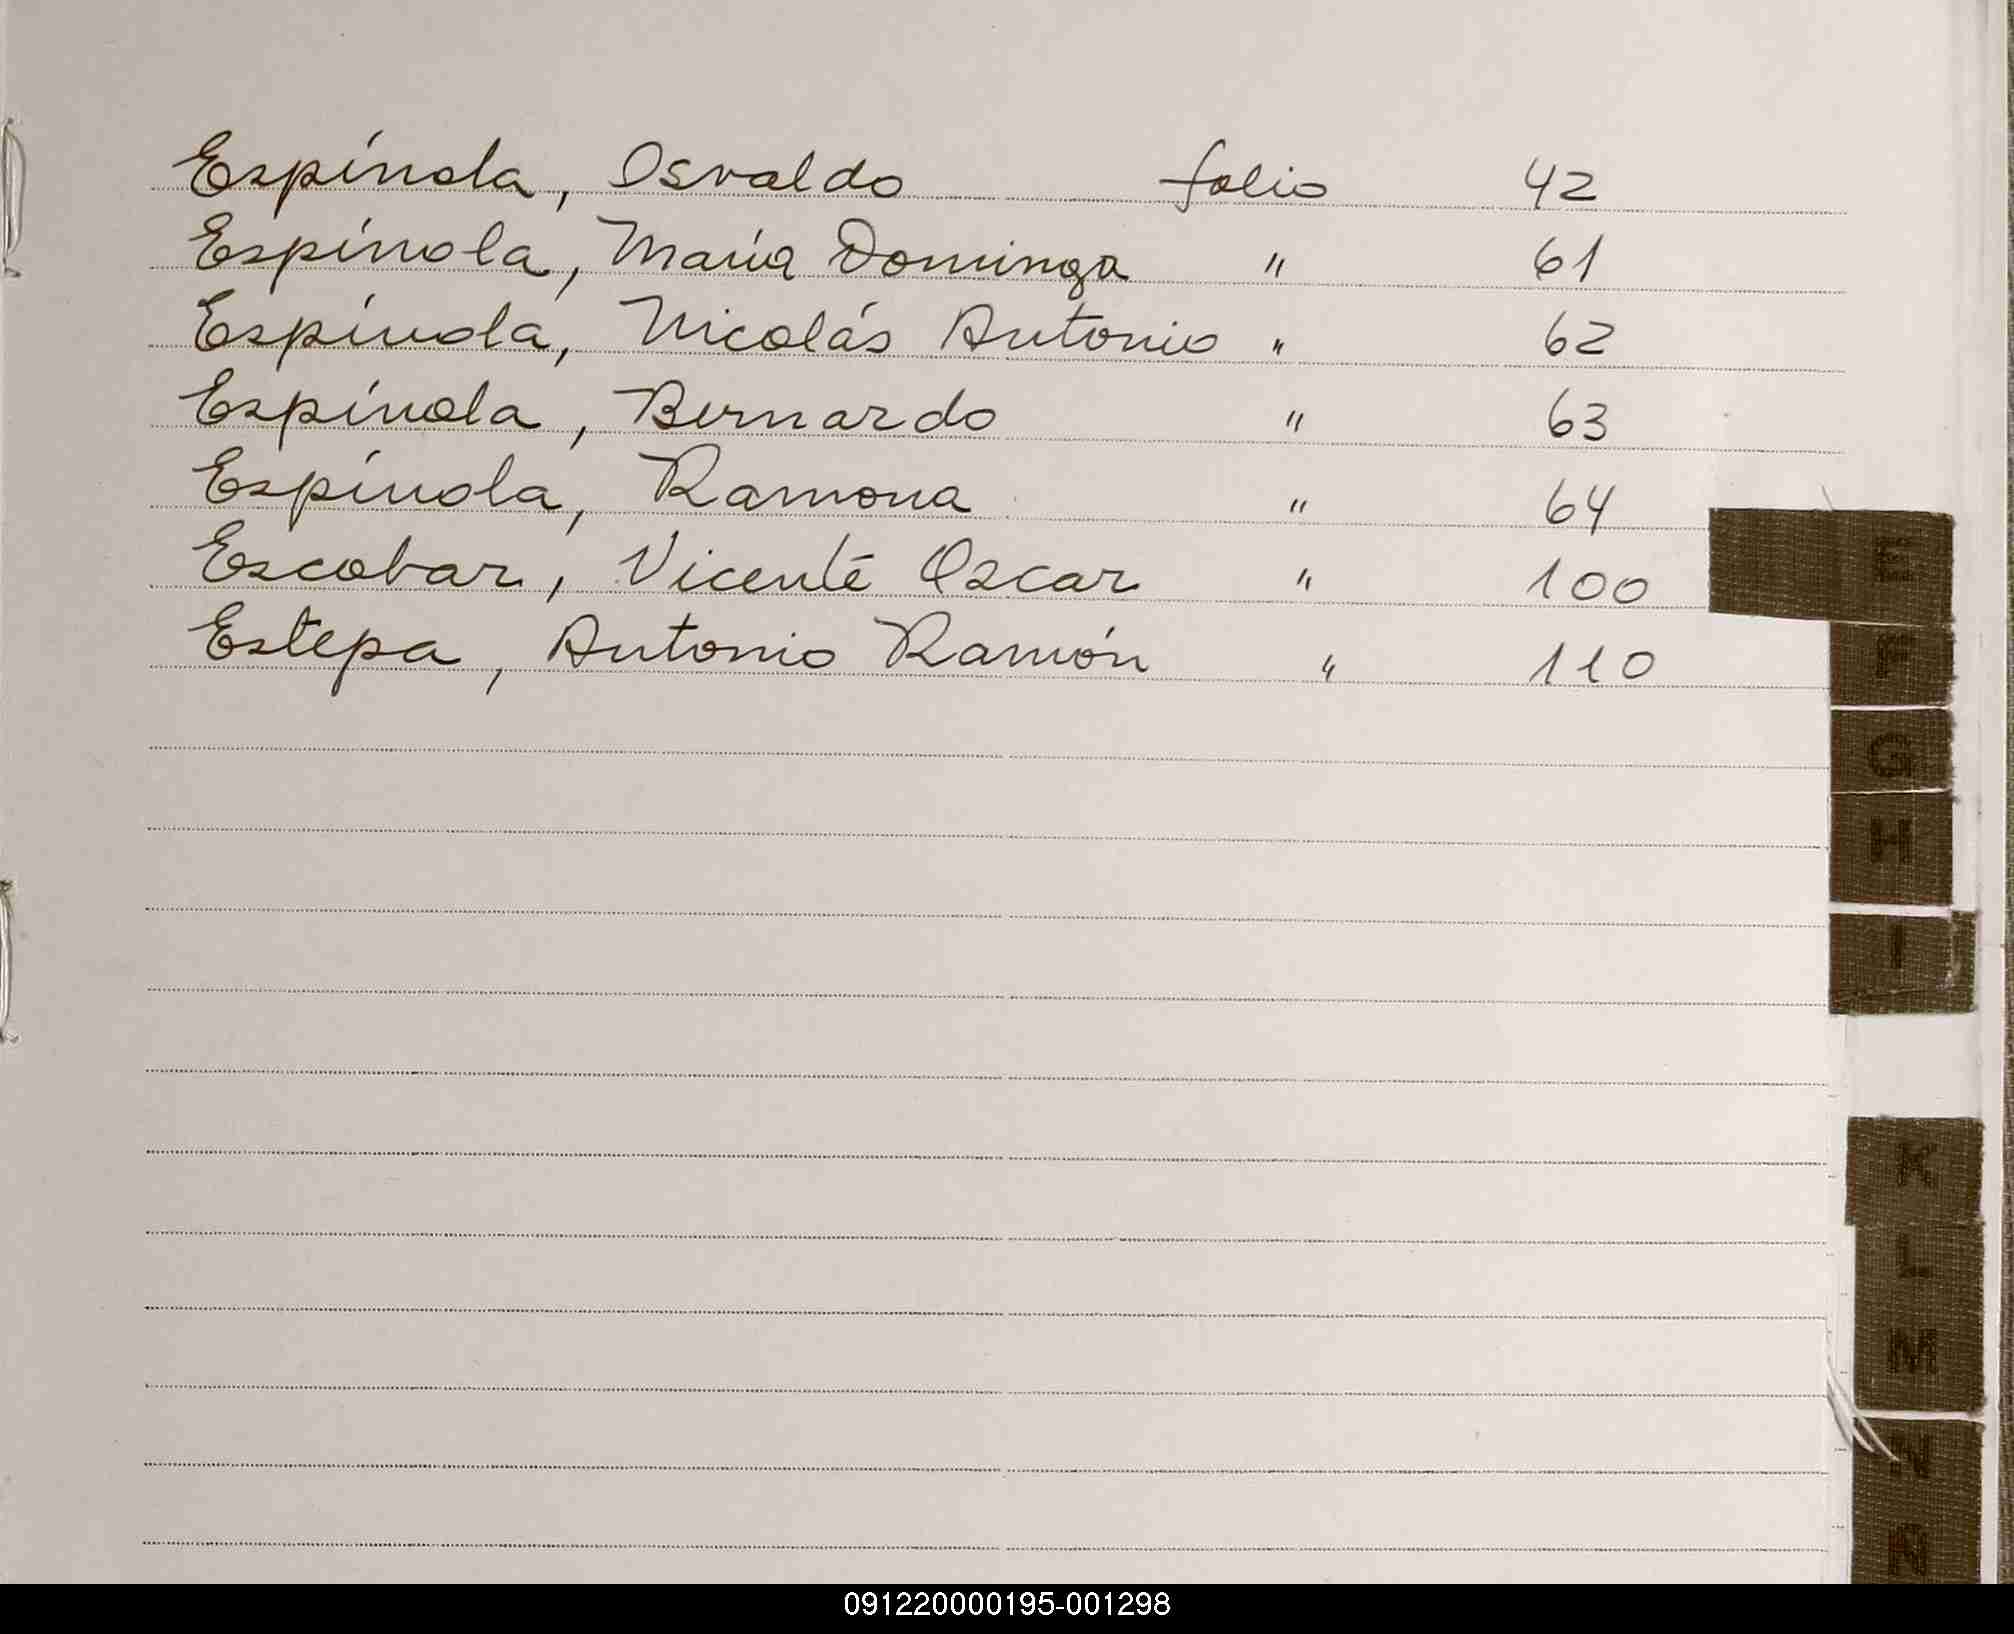 Espínola, Osvaldo folio 42
Espínola, María Dominga " 61
Espínola, Nicolás Antonio " 62
Espínola, Bernardo " 63
Espínola, Ramona " 64
Escobar, Vicente Oscar " 100
Estepa, Antonio Ramón " 110
E
F
G
H
I
J
K
L
M
N
Ñ
091220000195-001298